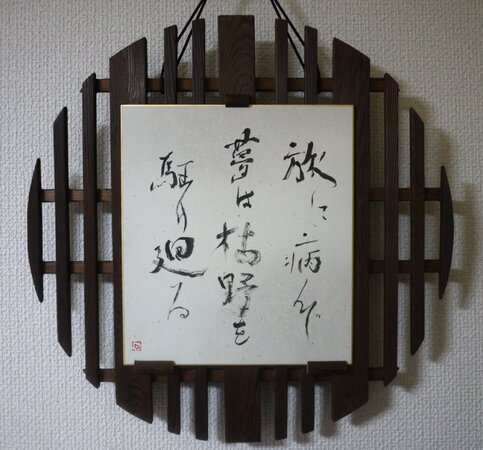 旅に病んで
夢は枯野を
駈け廻る